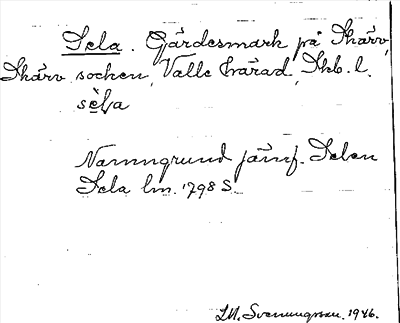 Sela. Gärdesmark på Skärv,
Skärv socken, Valle härad, Skb. l.
sèla
Namngrund jämf. Selen
Sela lm. 1798 S.
I.M. Svenungsson. 1946.